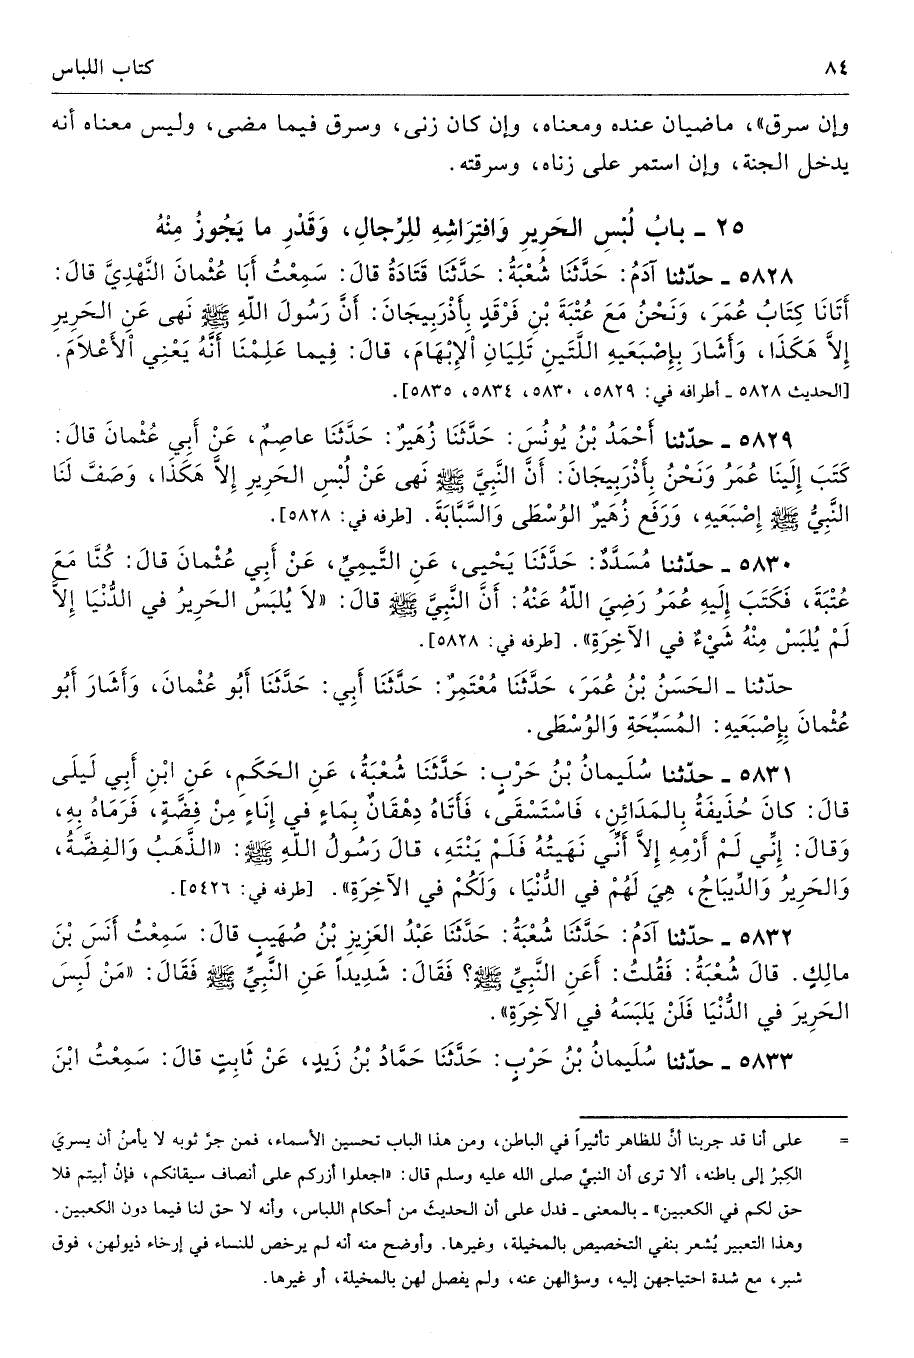 ٨٤ كتاب اللباس
وإن سرق»، ماضيان عنده ومعناه، وإن كان زنى، وسرق فيما مضى، وليس معناه أنه
يدخل الجنة، وإن استمر على زناه، وسرقته.
٢٥ ـ بابُ لُبْسِ الحَرِيرِ وَافْتِرَاشِهِ للِرِّجالِ، وَقَدْرِ ما يَجُوزُ مِنْهُ
٥٨٢٨ ـ حدّثنا آدَمُ: حَدَّثَنَا شُعْبَةُ: حَدَّثَنَا قَتَادَةُ قالَ: سَمِعْتُ أَبَا عُثْمانَ النَّهْدِيَّ قالَ:
أَتَانَا كِتَابُ عُمَرَ، وَنَحْنُ مَعَ عُتْبَةَ بْنِ فَرْقَدٍ بِأَذْرَبِيجَانَ: أَنَّ رَسُولَ اللّهِ ﷺ نَهى عَنِ الحَرِيرِ
إِلاَّ هَكَذَا، وَأَشَارَ بِإِصْبَعَيهِ اللَّتَينِ تَلِيَانِ الإِبْهَامَ، قالَ: فِيما عَلِمْنَا أَنَّهُ يَعْنِي الأَعْلاَمَ.
[الحديث ٥٨٢٨ ـ أطرافه في: ٥٨٢٩، ٥٨٣٠، ٥٨٣٤، ٥٨٣٥].
٥٨٢٩ ـ حدّثنا أَحْمَدُ بْنُ يُونُسَ: حَدَّثَنَا زُهَيرٌ: حَدَّثَنَا عاصِمٌ، عَنْ أَبِي عُثْمانَ قالَ:
كَتَبَ إِلَينَا عُمَرُ وَنَحْنُ بِأَذْرَبِيجَانَ: أَنَّ النَّبِيَّ ﷺ نَهى عَنْ لُبْسِ الحَرِيرِ إِلاَّ هَكَذَا، وَصَفَّ لَنَا
النَّبِيُّ ﷺ إِصْبَعَيهِ، وَرَفَع زُهَيرٌ الوُسْطَى وَالسَّبَّابَةَ. [طرفه في: ٥٨٢٨].
٥٨٣٠ ـ حدّثنا مُسَدَّدٌ: حَدَّثَنَا يَحْيى، عَنِ التَّيمِيِّ، عَنْ أَبِي عُثْمانَ قالَ: كُنَّا مَعَ
عُتْبَةَ، فَكَتَبَ إِلَيهِ عُمَرُ رَضِيَ اللّهُ عَنْهُ: أَنَّ النَّبِيَّ ﷺ قالَ: «لاَ يُلبَسُ الحَرِيرُ في الدُّنْيَا إِلاَّ
لَمْ يُلبَسْ مِنْهُ شَيْءٌ في الآخِرَةِ». [طرفه في: ٥٨٢٨].
حدّثنا ـ الحَسَنُ بْنُ عُمَرَ، حَدَّثَنَا مُعْتَمِرٌ: حَدَّثَنَا أَبِي: حَدَّثَنَا أَبُو عُثْمانَ، وَأَشَارَ أَبُو
عُثْمانَ بِإِصْبَعَيهِ: المُسَبِّحَةِ وَالوُسْطَى.
٥٨٣١ ـ حدّثنا سُلَيمانُ بْنُ حَرْبٍ: حَدَّثَنَا شُعْبَةُ، عَنِ الحَكَمِ، عَنِ ابْنِ أَبِي لَيلَى
قالَ: كانَ حُذَيفَةُ بِالمَدَائِنِ، فَاسْتَسْقَى، فَأَتَاهُ دِهْقَانٌ بِمَاءٍ في إِنَاءٍ مِنْ فِضَّةٍ، فَرَمَاهُ بِهِ،
وَقالَ: إِنِّي لَمْ أَرْمِهِ إِلاَّ أَنِّي نَهَيتُهُ فَلَمْ يَنْتَهِ، قالَ رَسُولُ اللّهِ ﷺ: «الذَّهَبُ وَالفِضَّةُ،
وَالحَرِيرُ وَالدِّيبَاجُ، هِيَ لَهُمْ في الدُّنْيَا، وَلَكُمْ في الآخِرَةِ». [طرفه في: ٥٤٢٦].
٥٨٣٢ ـ حدّثنا آدَمُ: حَدَّثَنَا شُعْبَةُ: حَدَّثَنَا عَبْدُ العَزِيزِ بْنُ صُهَيبٍ قالَ: سَمِعْتُ أَنَسَ بْنَ
مالِكٍ. قالَ شُعْبَةُ: فَقُلتُ: أَعَنِ النَّبِيِّ ﷺ؟ فَقَالَ: شَدِيداً عَنِ النَّبِيِّ ﷺ فَقَالَ: «مَنْ لَبِسَ
الحَرِيرَ في الدُّنْيَا فَلَنْ يَلبَسَهُ في الآخِرَةِ».
٥٨٣٣ ـ حدّثنا سُلَيمانُ بْنُ حَرْبٍ: حَدَّثَنَا حَمَّادُ بْنُ زَيدٍ، عَنْ ثَابِتٍ قالَ: سَمِعْتُ ابْنَ
= على أنا قد جربنا أنَّ للظاهر تأثيراً في الباطن، ومن هذا الباب تحسين الأسماء، فمن جرَّ ثوبه لا يأمنُ أن يسريَ
الكِبرُ إلى باطنه، ألا ترى أن النبيَّ صلى الله عليه وسلم قال: «اجعلوا أزركم على أنصاف سيقانكم، فإنْ أبيتم فلا
حق لكم في الكعبين» ـ بالمعنى ـ فدل على أن الحديثَ من أحكام اللباس، وأنه لا حق لنا فيما دون الكعبين.
وهذا التعبير يُشعر بنفي التخصيص بالمخيلة، وغيرها. وأوضح منه أنه لم يرخص للنساء في إرخاء ذيولهن، فوق
شبر، مع شدة احتياجهن إليه، وسؤالهن عنه، ولم يفصل لهن بالمخيلة، أو غيرها.